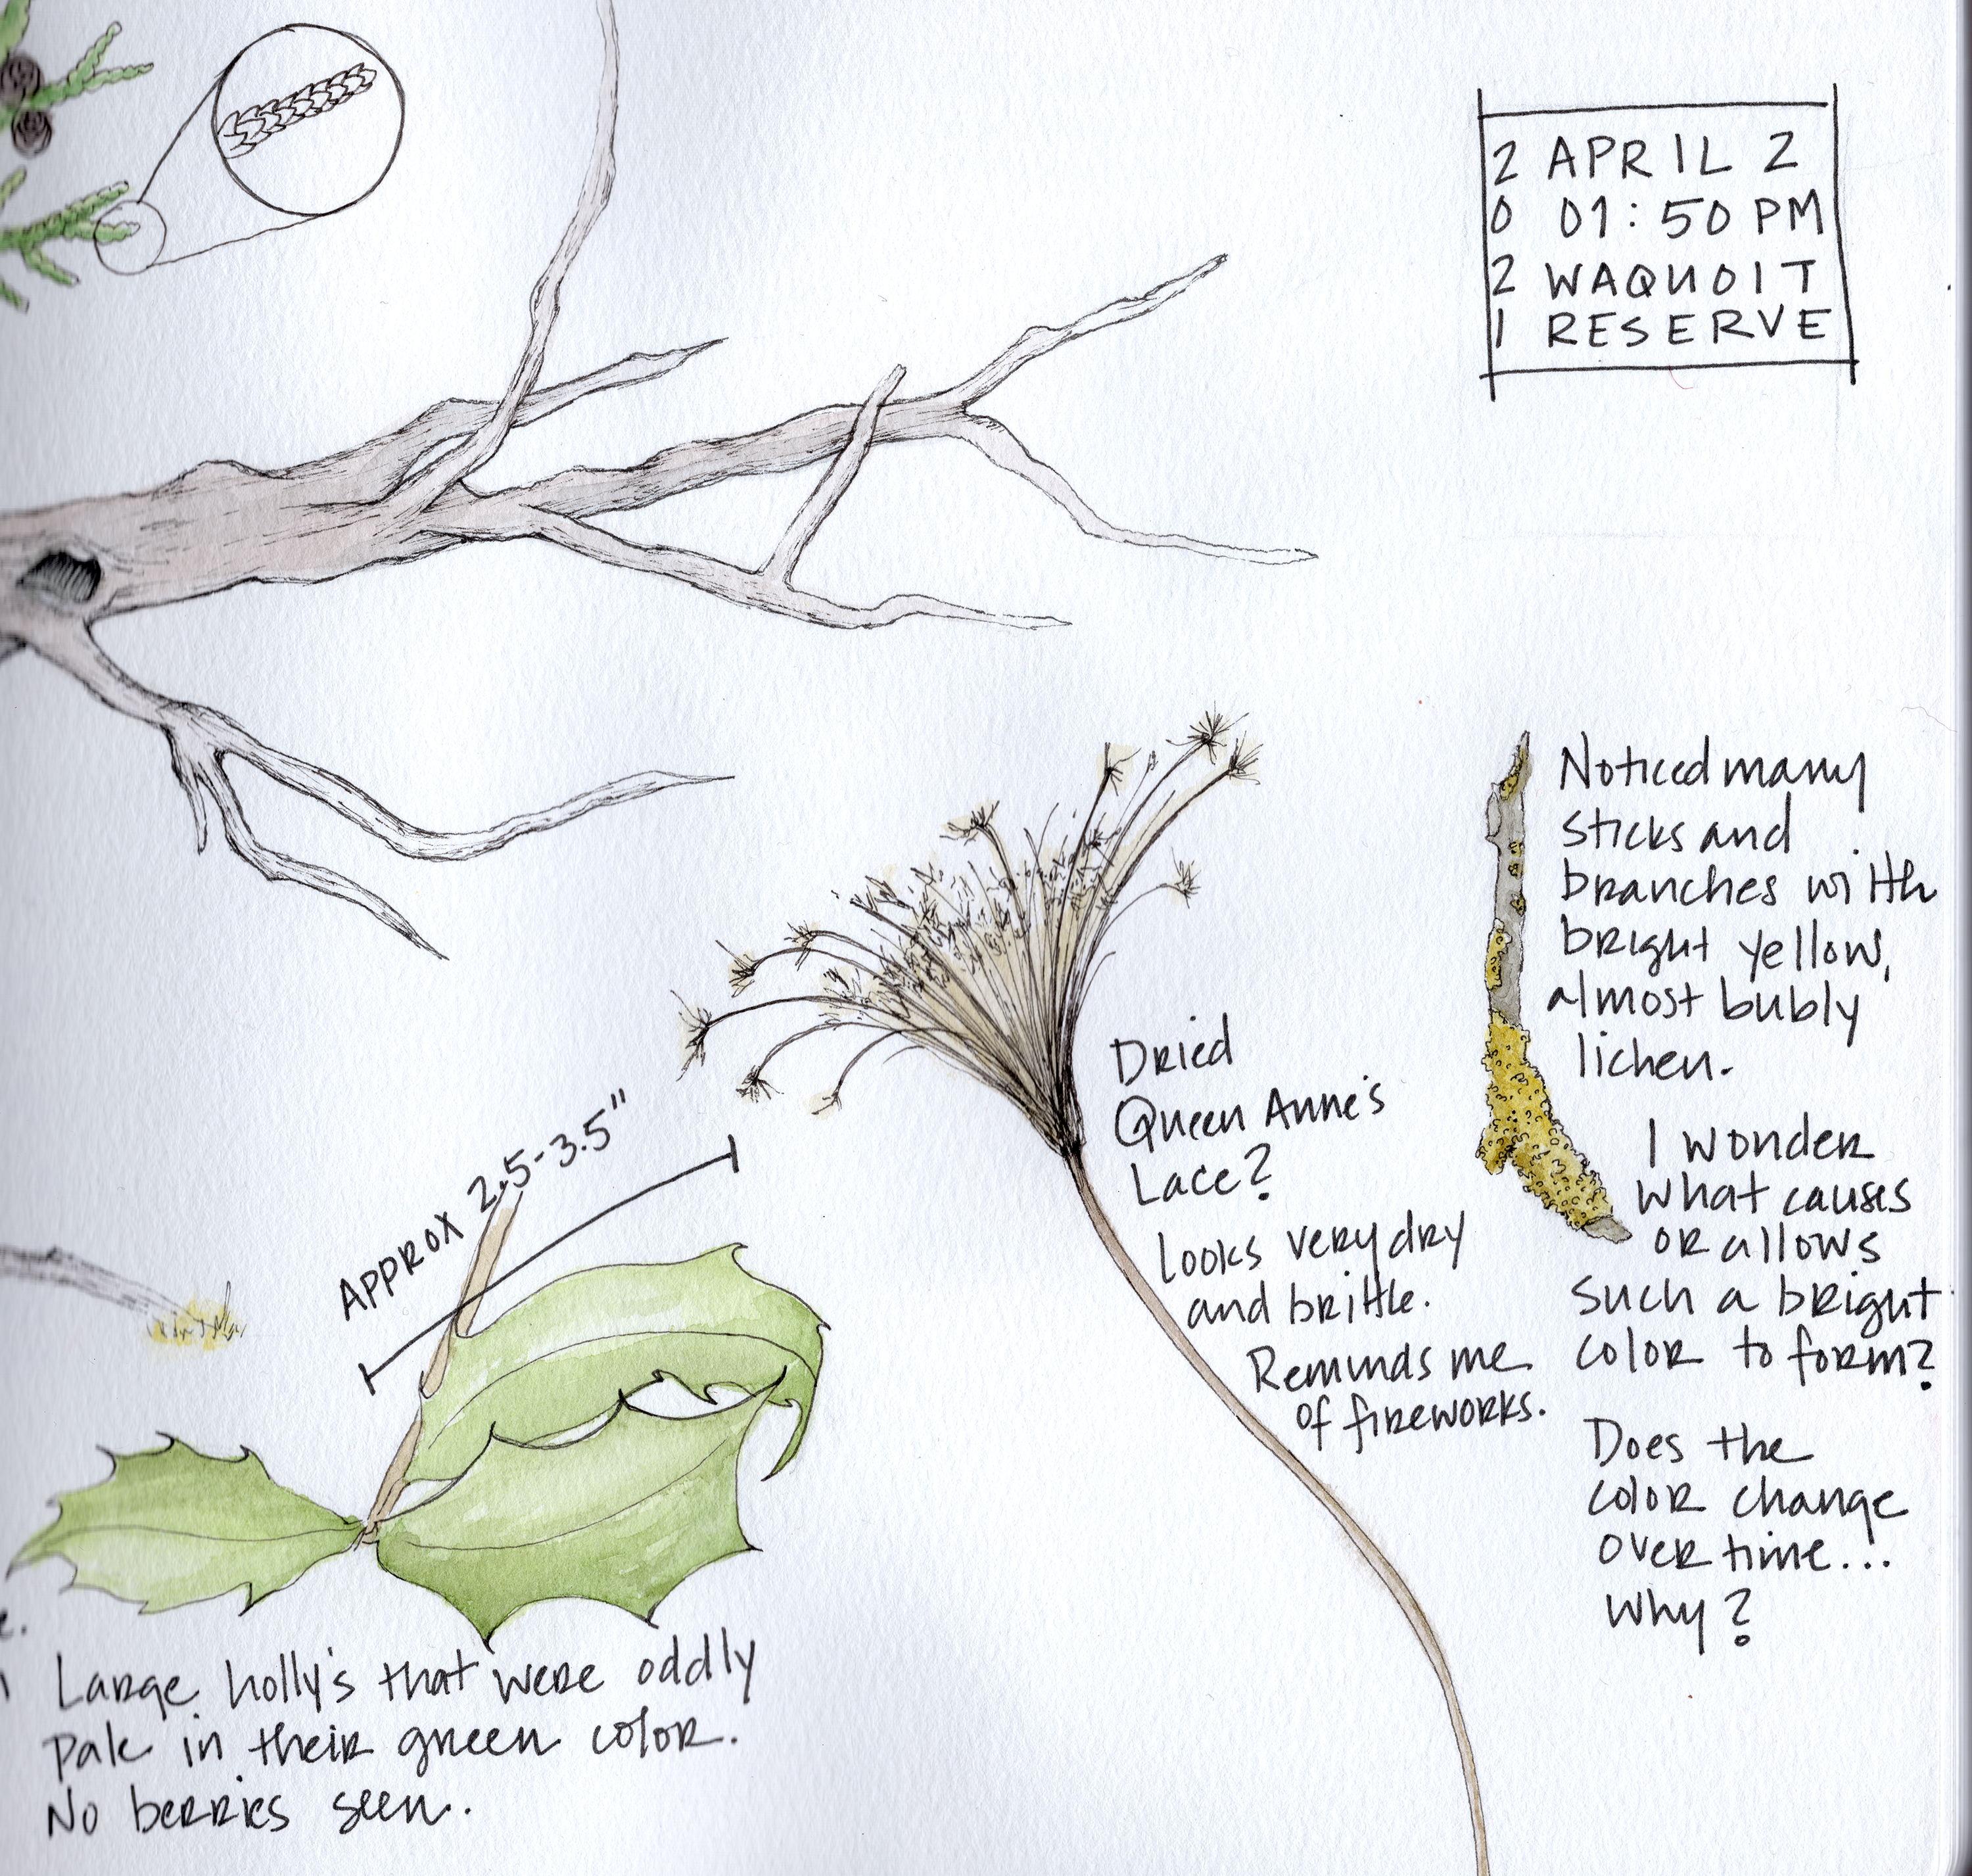 2 APRIL 2
0 01:50 PM
2 WAQUOIT
1 RESERVE
Noticed many
sticks and
branches with
bright yellow,
almost bubly
lichen.
I wonder
what causes
or allows
such a bright
color to form?
Does the
color change
over time...
Why?
Dried
Queen Anne's
Lace?
Looks very dry
and brittle.
Reminds me
of fireworks.
APPROX 2.5-3.5"
Large holly's that were oddly
pale in their green color.
No berries seen.